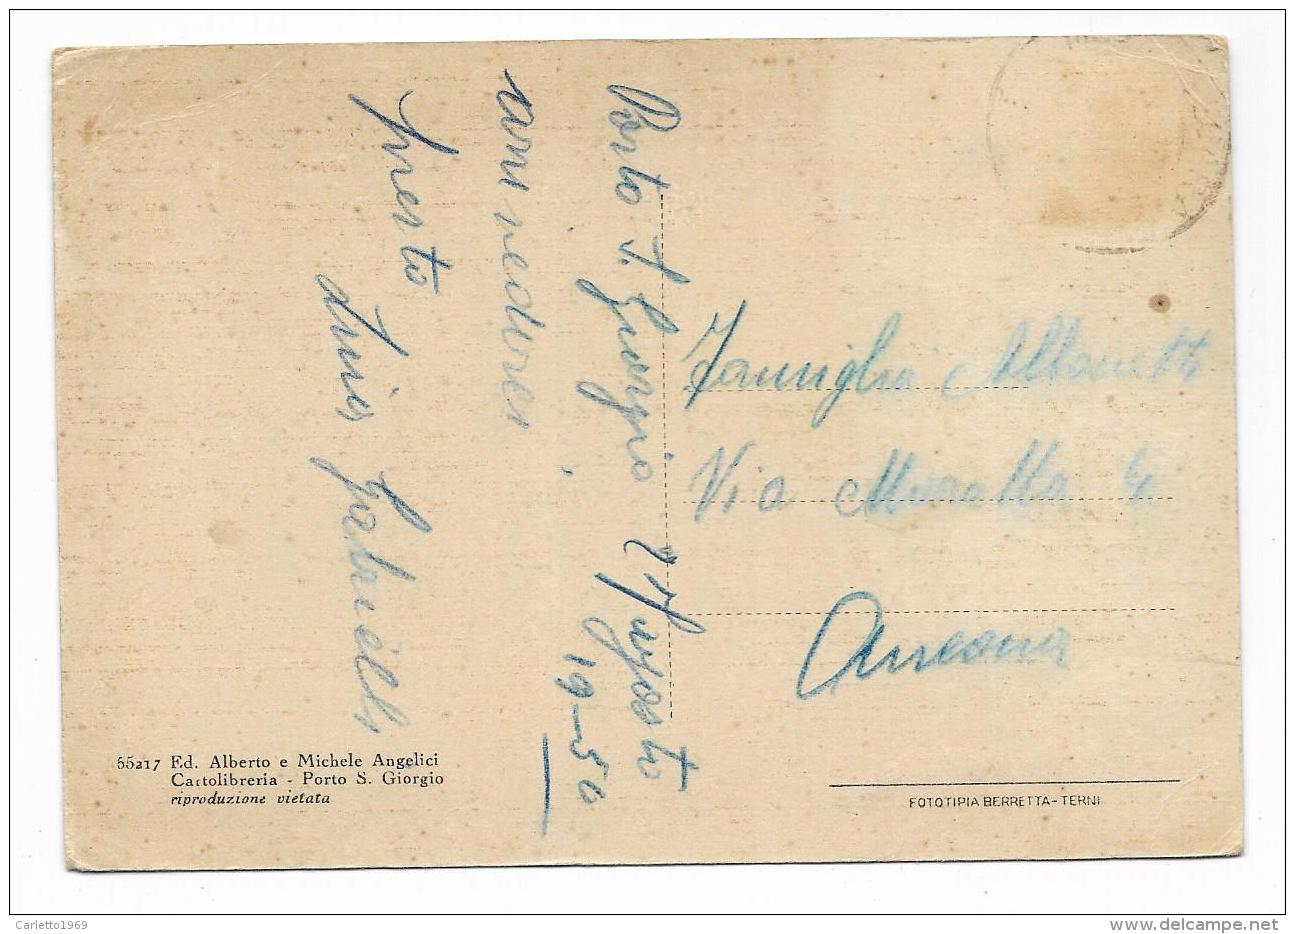 Porto S. Giorgio 2 Agosto
19-50
arrivederci
presto
Gabrielli
Famiglia Albonetti
Via Maratta 4
Ancona
55217 Ed. Alberto e Michele Angelici
Cartolibreria - Porto S. Giorgio
riproduzione vietata
FOTOTIPIA BERRETTA-TERNI
Carletto1969
delcampe.net